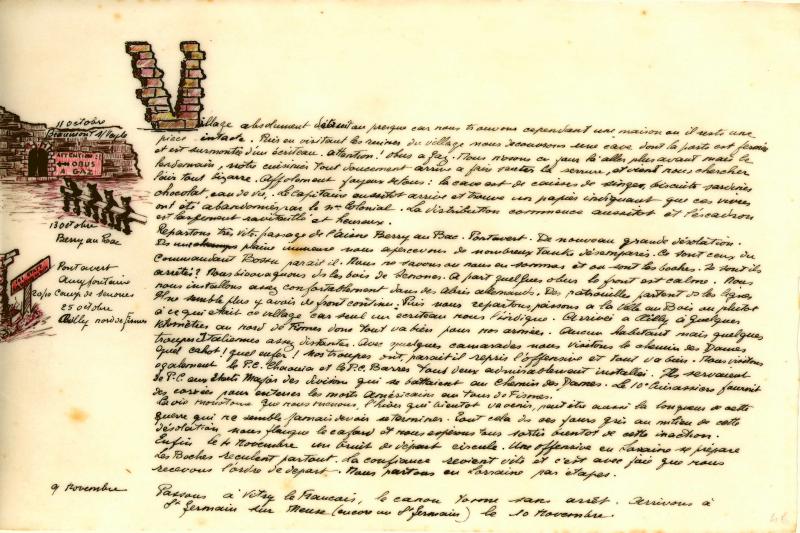 11 Octobre
Beaumont s/ Vesle
ATTENTION!!
OBUS
A GAZ
13 Octobre
Berry au Bac
Pontavert
20/10 Camp de
25 Octobre
nord de Fismes
Village absolument détruit ou presque car nous trouvons cependant une maison ou il reste une
pièce intacte. Puis en visitant les ruines du village nous découvrons une cave dont la porte est fermée
et est surmontée d'un écriteau. attention! Obus a gaz. Nous n'osons ce jour là aller plus avant mais le
lendemain, notre cuisinier tout doucement arrive a faire sauter la serrure, et vient nous chercher
l'air tout bizarre. Affolement joyeux de tous: la cave est de caisses de singes, biscuits sardines
chocolat, eau de vie. Le Capitaine aussitôt arrive et trouve un papier indiquant que ces vivres
ont été abandonnés par le Colonial. La distribution commence aussitot et l'escadron
est largement ravitaillé et heureux.
Repartons très vite. passage de l'Aisne Berry au Bac. Pontavert. De nouveau grande désolation.
plaine immense nous apercevons de nombreux tanks désemparés. Ce sont ceux du
Commandant Bossu parait il. Nous ne savons ou nous en sommes et ou sont les boches. Se sont ils
arrêtés? Nous bivouaquons ds les bois de. A part quelques obus le front est calme. Nous
nous installons assez confortablement dans des abris allemands. Des patrouilles partent ds les lignes
Il ne semble plus y avoir de front continu. Puis nous repartons, passons a la Ville au Bois ou plutot
à ce qui était ce village car seul un écriteau nous l'indique. Arrivée a à quelques
kilomètres au nord de Fismes donc tout va bien pour nos armées. Aucun habitant mais quelques
troupes Italiennes assez distantes. Avec quelques camarades nous visitons le chemin des Dames
Quel cahot! quel enfer! Nos troupes ont, parait-il repris l'offensive et tout va bien. Nous visitons
également le P.C. Chaouia et le P.C. Barres tous deux admirablement installés. Ils servaient
de P.C. aux Etats Major des divisions qui se battaient au Chemin des Dames. Le 10e Cuirassiers fournit
des corvées pour enterrer les morts Américains autour de Fismes.
La vie monotone que nous menons, l'hiver qui bientot va venir, peut être aussi la longueur de cette
guerre qui ne semble jamais devoir se terminer. Tout cela ds ces jours gris au milieu de cette
désolation nous flanque le cafard et nous espérons tous sortir bientot de cette inaction.
Enfin le 4 Novembre un bruit de départ circule. Une offensive en Lorraine se prépare
Les Boches reculent partout. La confiance revient vite et c'est avec joie que nous
recevons l'ordre de départ. Nous partons en Lorraine par étapes.
9 Novembre
Passons à Vitry le Francois, le canon tonne sans arrêt. Arrivons à
St Germain sur Meuse (encore un St Germain) le 10 Novembre.